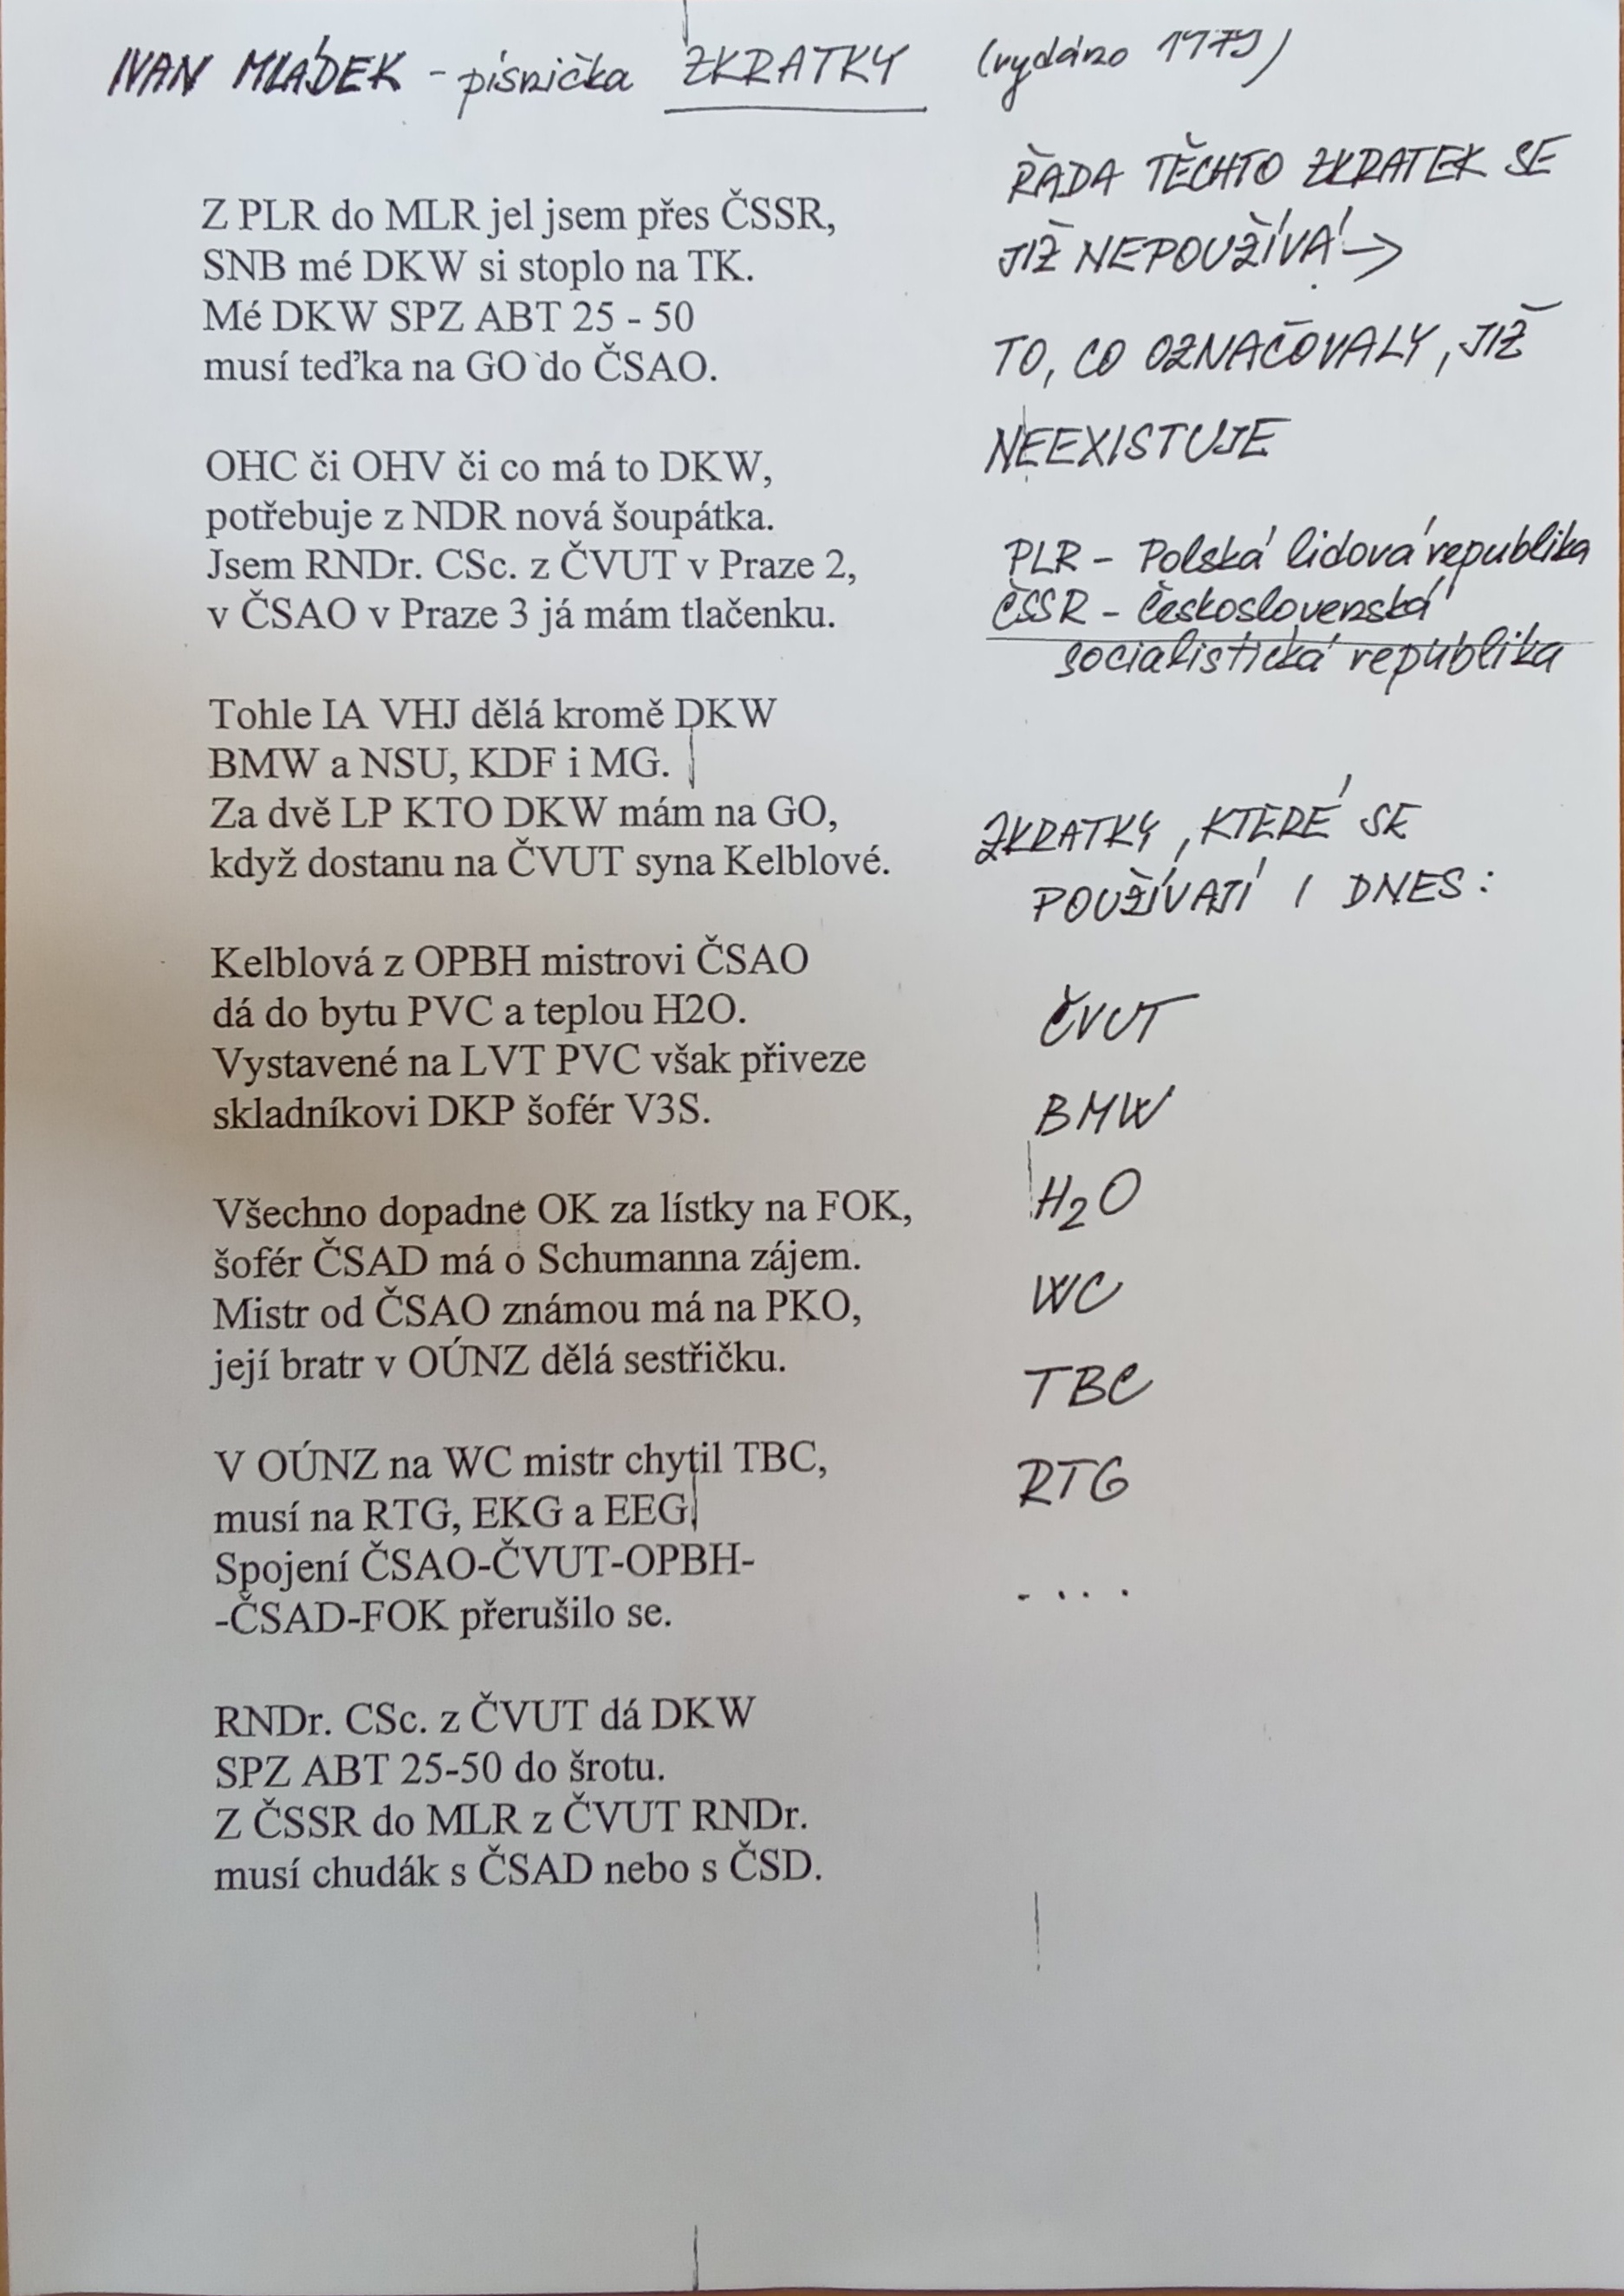 IVAN MLÁDEK - písnička ZKRATKY (vydáno 1979)
Z PLR do MLR jel jsem přes ČSSR,
SNB mé DKW si stoplo na TK.
Mé DKW SPZ ABT 25 - 50
musí teďka na GO do ČSAO.
OHC či OHV či co má to DKW,
potřebuje z NDR nová šoupátka.
Jsem RNDr. CSc. z ČVUT v Praze 2,
v ČSAO v Praze 3 já mám tlačenku.
Tohle IA VHJ dělá kromě DKW
BMW a NSU, KDF i MG.
Za dvě LP KTO DKW mám na GO,
když dostanu na ČVUT syna Kelblové.
Kelblová z OPBH mistrovi ČSAO
dá do bytu PVC a teplou H2O.
Vystavené na LVT PVC však přiveze
skladníkovi DKP šofér V3S.
Všechno dopadne OK za lístky na FOK,
šofér ČSAD má o Schumanna zájem.
Mistr od ČSAO známou má na PKO,
její bratr v OÚNZ dělá sestřičku.
V OÚNZ na WC mistr chytil TBC,
musí na RTG, EKG a EEG.
Spojení ČSAO-ČVUT-OPBH-
-ČSAD-FOK přerušilo se.
RNDr. CSc. z ČVUT dá DKW
SPZ ABT 25-50 do šrotu.
Z ČSSR do MLR z ČVUT RNDr.
musí chudák s ČSAD nebo s ČSD.
ŘADA TĚCHTO ZKRATEK SE
JIŽ NEPOUŽÍVÁ →
TO, CO OZNAČOVALY, JIŽ
NEEXISTUJE
PLR - Polská lidová republika
ČSSR - Československá
socialistická republika
ZKRATKY, KTERÉ SE
POUŽÍVAJÍ I DNES:
ČVUT
BMW
H2O
WC
TBC
RTG
....